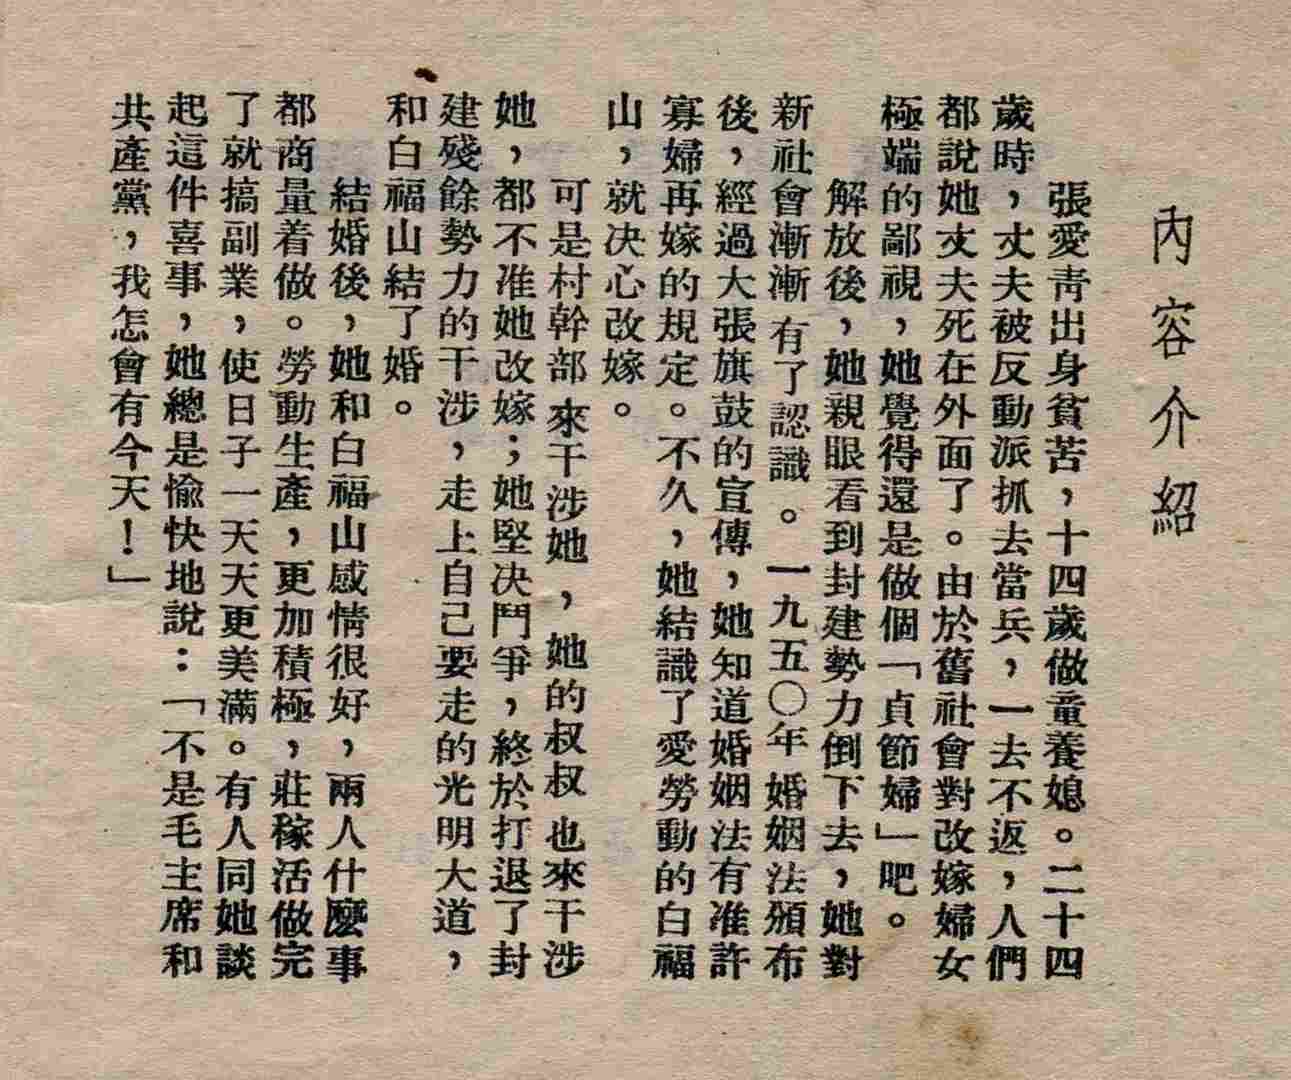 內容介紹
張愛青出身貧苦，十四歲做童養媳。二十四
歲時，丈夫被反動派抓去當兵，一去不返，人們
都說她丈夫死在外面了。由於舊社會對改嫁婦女
極端的鄙視，她覺得還是做個「貞節婦」吧。
解放後，她親眼看到封建勢力倒下去，她對
新社會漸漸有了認識。一九五〇年婚姻法頒布
後，經過大張旗鼓的宣傳，她知道婚姻法有准許
寡婦再嫁的規定。不久，她結識了愛勞動的白福
山，就決心改嫁。
可是村幹部來干涉她，她的叔叔也來干涉
她，都不准她改嫁；她堅決鬥爭，終於打退了封
建殘餘勢力的干涉，走上自己要走的光明大道，
和白福山結了婚。
結婚後，她和白福山感情很好，兩人什麼事
都商量着做。勞動生產，更加積極，莊稼活做完
了就搞副業，使日子一天天更美滿。有人同她談
起這件喜事，她總是愉快地說：「不是毛主席和
共產黨，我怎會有今天！」